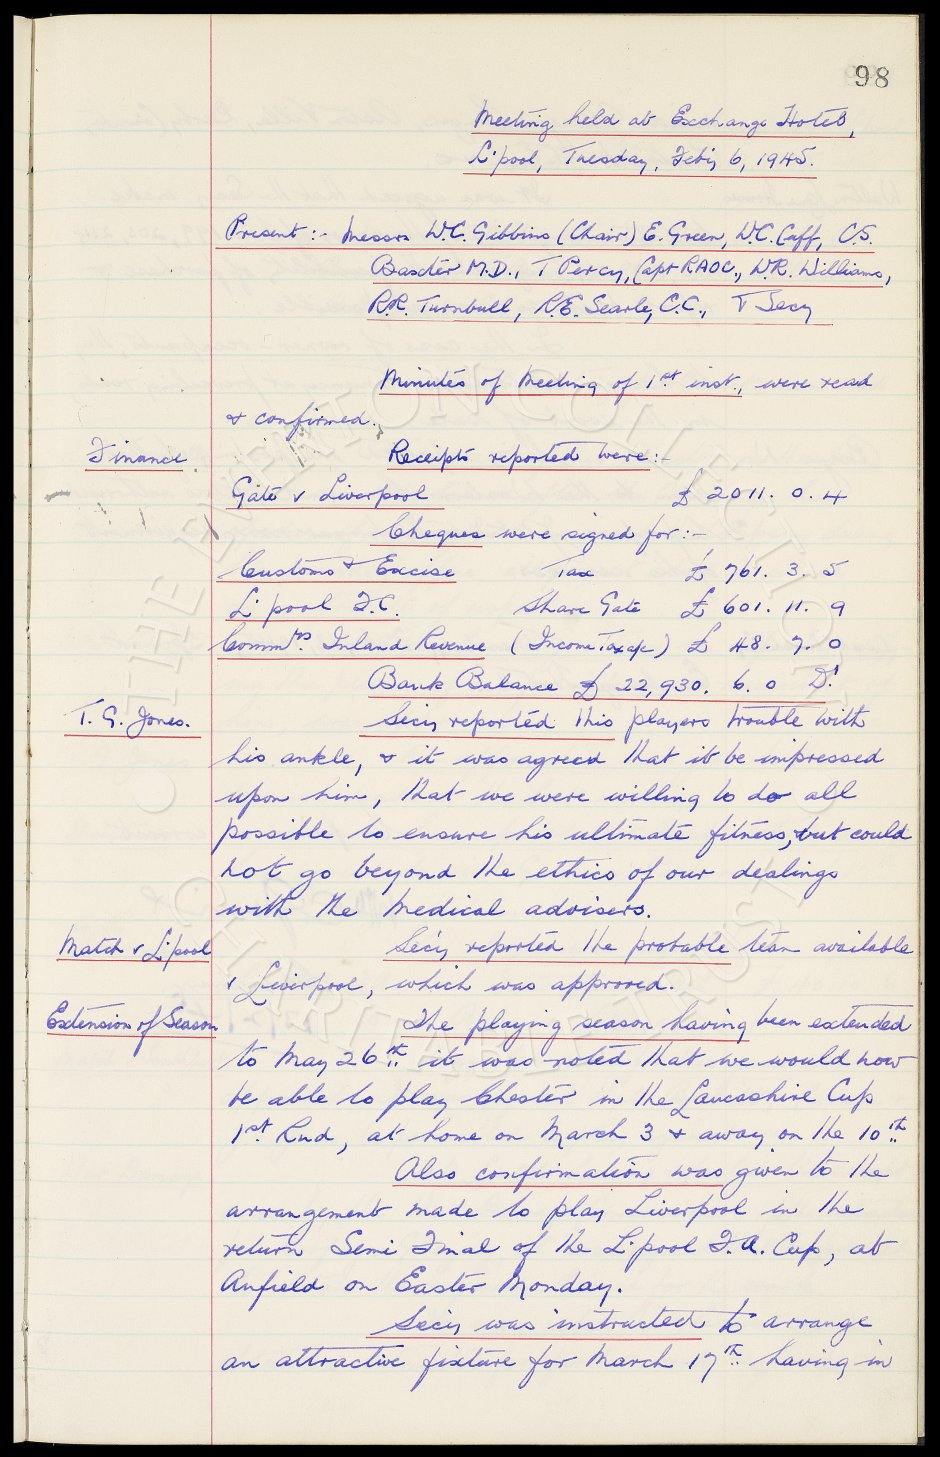 98
Meeting held at Exchange Hotel,
L'pool, Tuesday, Feb'y 6, 1945.
Present:- Messrs W.C. Gibbins (Chair) E. Green, W.C. Cuff, C.S.
Baxter M.D., T Percy, Capt RAOC., W.R. Williams,
R.R. Turnbull, R.E. Searle, C.C., & Secy
Minutes of Meeting of 1st inst., were read
& confirmed.
Finance Receipts reported were:-
Gate v Liverpool £ 2011. 0. 4
Cheques were signed for:-
Customs & Excise Tax £ 761. 3. 5
L'pool F.C. Share Gate £ 601. 11. 9
Commrs. Inland Revenue (Income Tax a/c) £ 48. 7. 0
Bank Balance £ 22,930. 6. 0 Dr
T. G. Jones. Secy reported this players trouble with
his ankle, & it was agreed that it be impressed
upon him, that we were willing to do all
possible to ensure his ultimate fitness, but could
not go beyond the ethics of our dealings
with the Medical advisers.
Match v L'pool Secy reported the probable team available
v Liverpool, which was approved.
Extension of Season The playing season having been extended
to May 26th it was noted that we would now
be able to play Chester in the Lancashire Cup
1st Rnd, at home on March 3 & away on the 10th
Also confirmation was given to the
arrangement made to play Liverpool in the
return Semi Final of the L'pool F.A. Cup, at
Anfield on Easter Monday.
Secy was instructed to arrange
an attractive fixture for March 17th having in
THE EVERTON COLLECTION
CHARITABLE TRUST